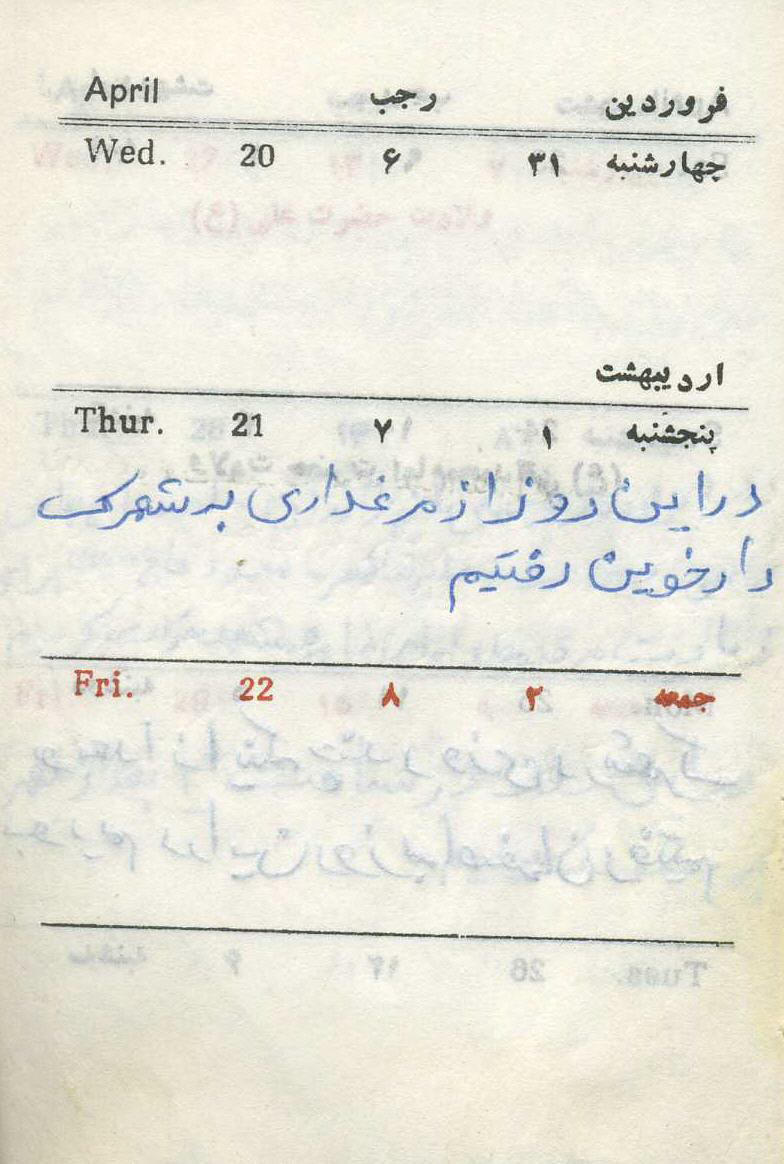 April رجب فروردین
Wed. 20 ۶ ۳۱ چهارشنبه
اردیبهشت
Thur. 21 ۷ ۱ پنجشنبه
در این روز از مرغداری به شهرک
دارخوین رفتیم
Fri. 22 ۸ ۲ جمعه